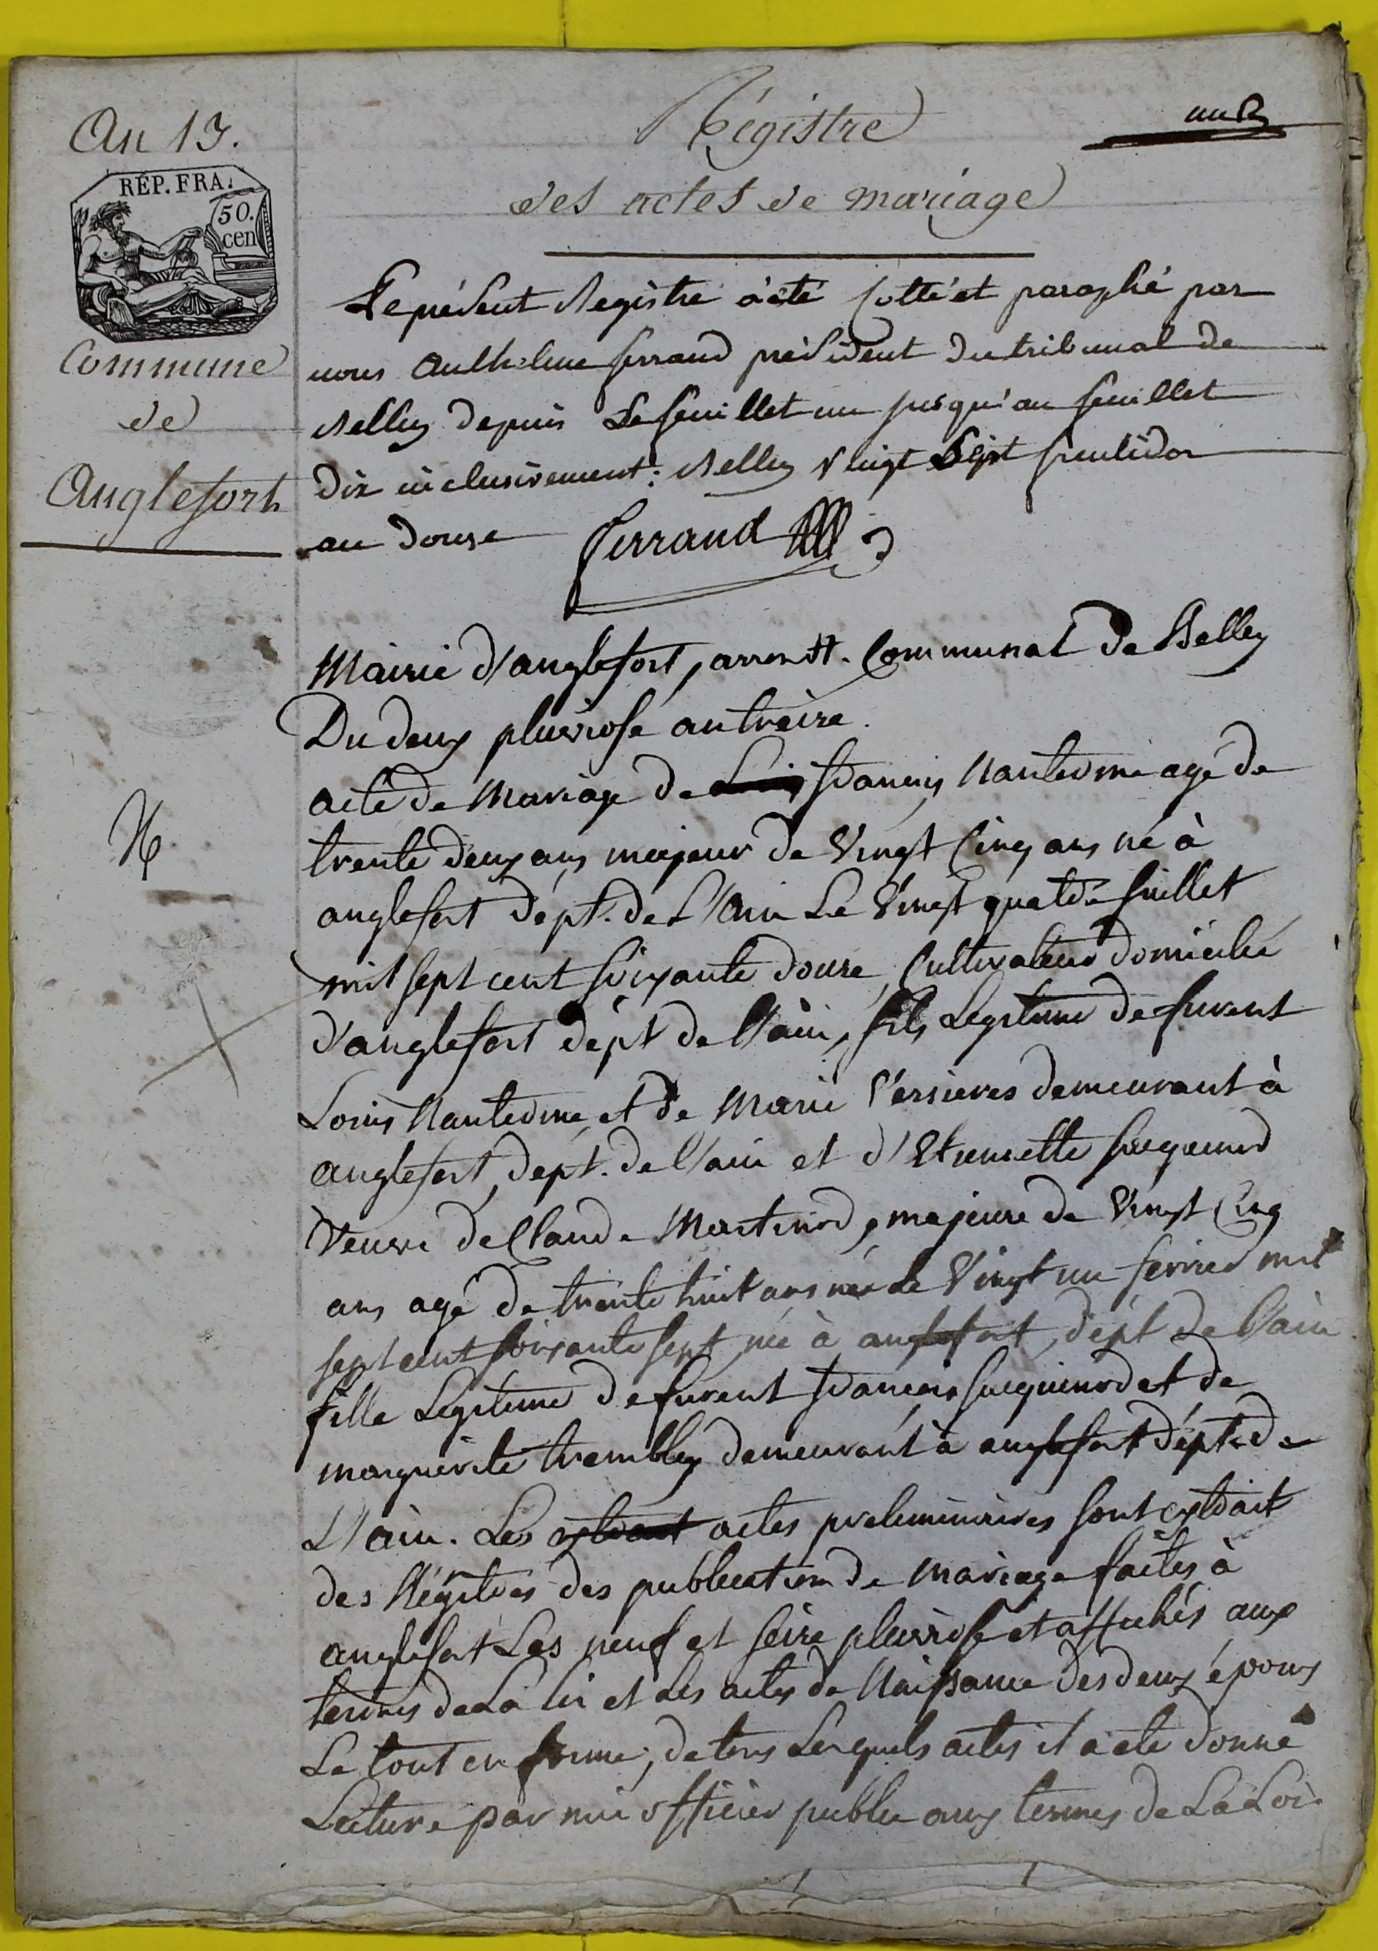 An 13.
RÉP. FRA.
50.
cen
Commune
de
Anglefort
Régistre
des actes de mariage
un
Le présent Registre a été Cotté et paraphé par
nous Anthelme ferrand président du tribunal de
Belley depuis Le feuillet un jusqu'au feuillet
dix inclusivement: Belley Vingt Sept fructidor
an douze Ferrand
Mairie d'anglefort, arrondt. Communal de Belley
Du deux pluviose an treize.
acte de Mariage de Louis françois Nanterme agé de
trente deux ans majeur de Vingt Cinq ans né à
anglefort dépt. de L'Ain Le Vingt quatre Juillet
mil sept cent soixante douze, Cultivateur domicilié
d'anglefort dépt de l'ain, fils Legitime de furent
Louis Nanterme et de Marie demeurant à
anglefort, dept. de l'ain et d'Etiennette Jacquemod
Veuve de Claude Martinod, majeure de Vingt Cinq
ans agé de trente huit ans née Le Vingt un fevrier mil
sept cent soixante sept née à anglefort, dépt de l'ain
fille Legitime de furent françois Jacquemod et de
marguerite trembley demeurant à anglefort dépt. de
L'ain. Les extrait actes preliminaires sont extrait
des Régitres des publication de Mariage faites à
anglefort Les neuf et seize pluviose et affichés aux
termes de La loi et Les actes de Naissance des deux époux
Le tout en forme; de tous Lesquels actes il a ete donné
Lecture par moi officier public aux termes de La Loi